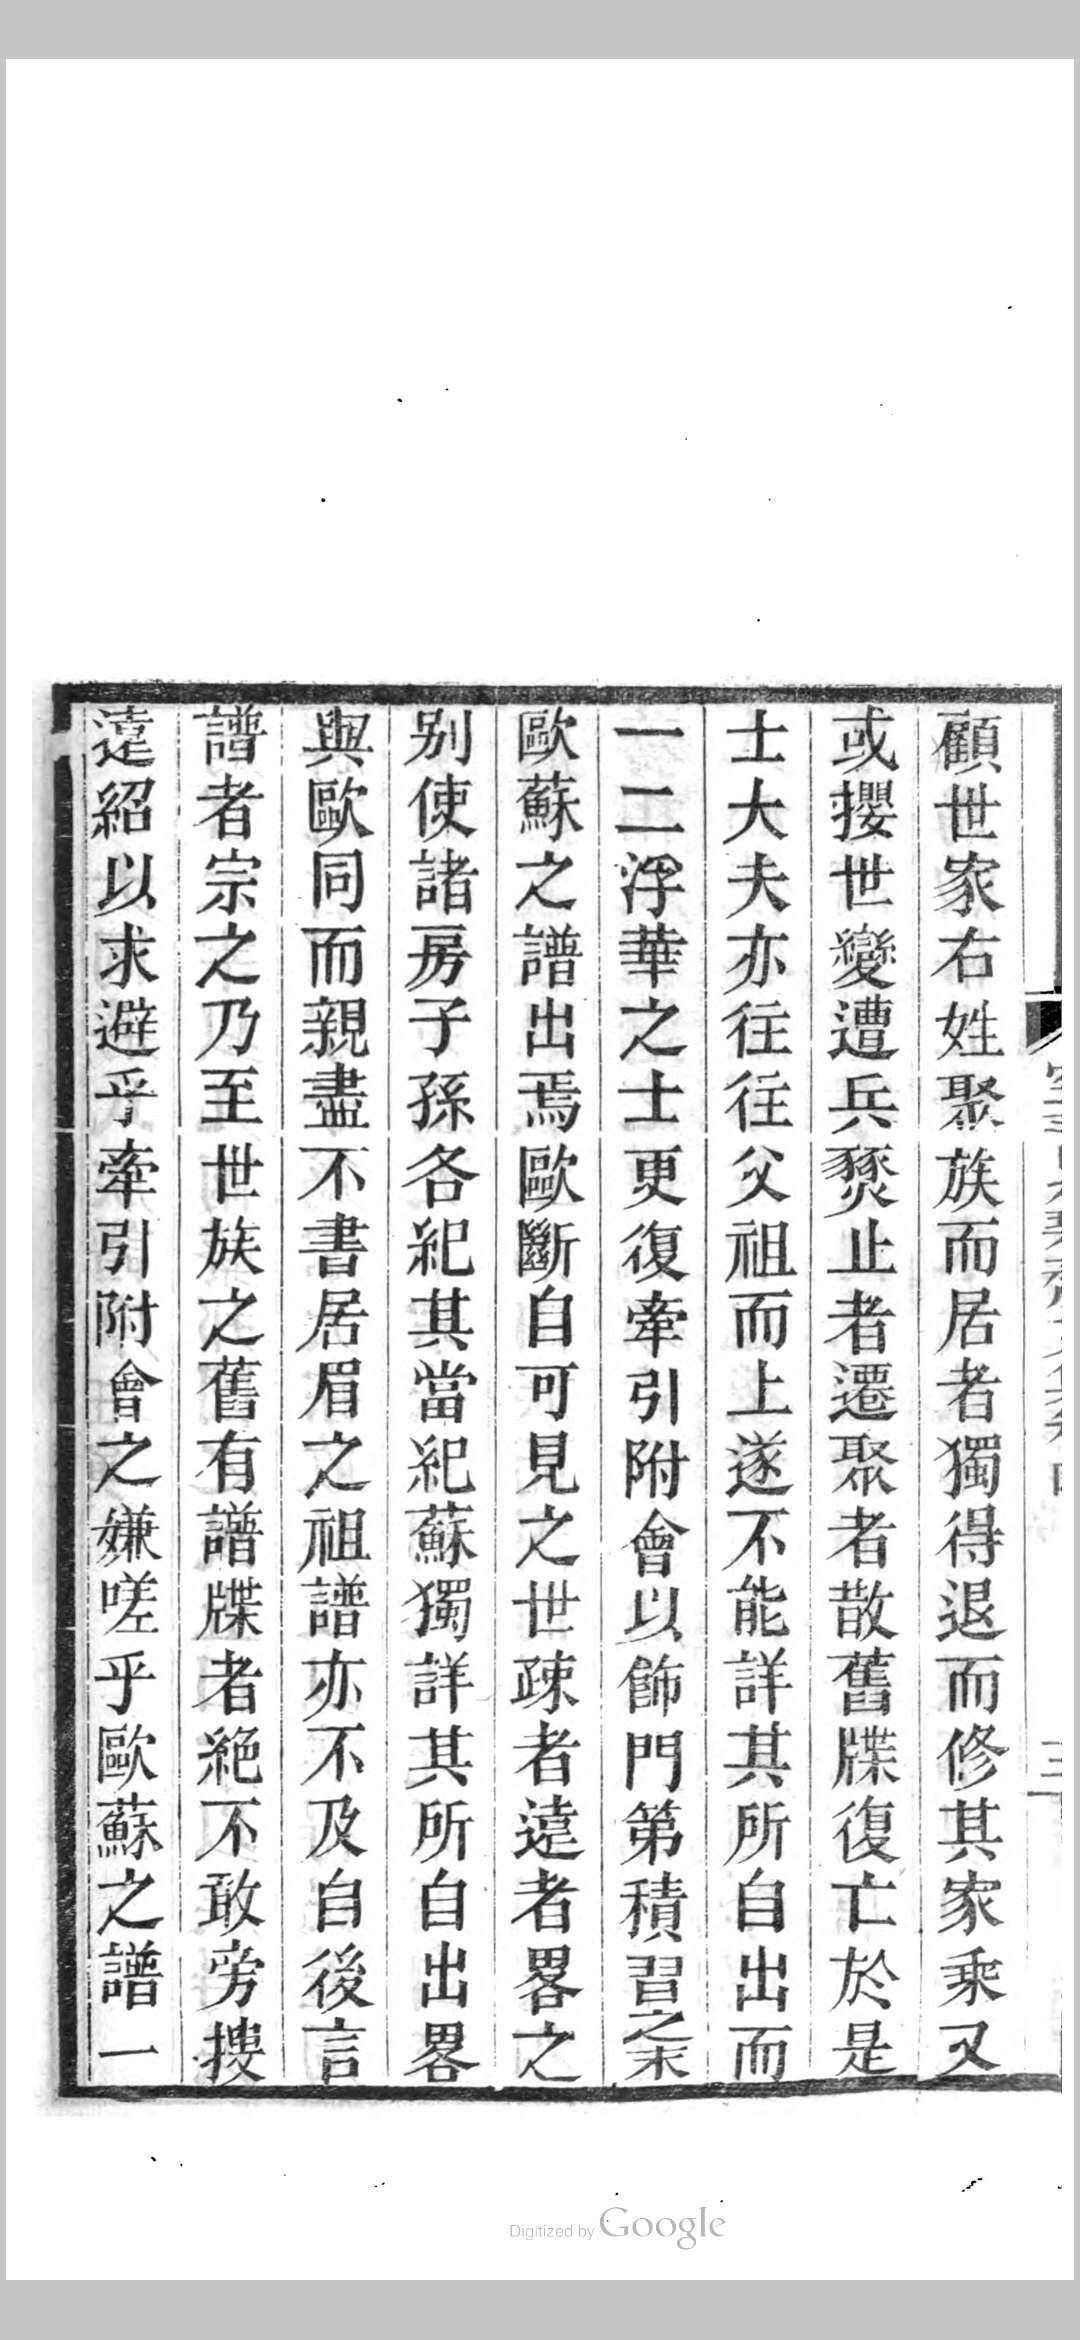 顧世家右姓聚族而居者獨得退而修其家乘又
或攖世變遭兵燹止者遷聚者散舊牒復亡於是
士大夫亦往往父祖而上遂不能詳其所自出而
一二浮華之士更復牽引附會以飾門第積習之末
歐蘇之譜出焉歐斷自可見之世疎者遠者畧之
别使諸房子孫各紀其當紀蘇獨詳其所自出畧
與歐同而親盡不書居眉之祖譜亦不及自後言
譜者宗之乃至世族之舊有譜牒者絕不敢旁搜
遠紹以求避乎牽引附會之嫌嗟乎歐蘇之譜一
Digitized by Google